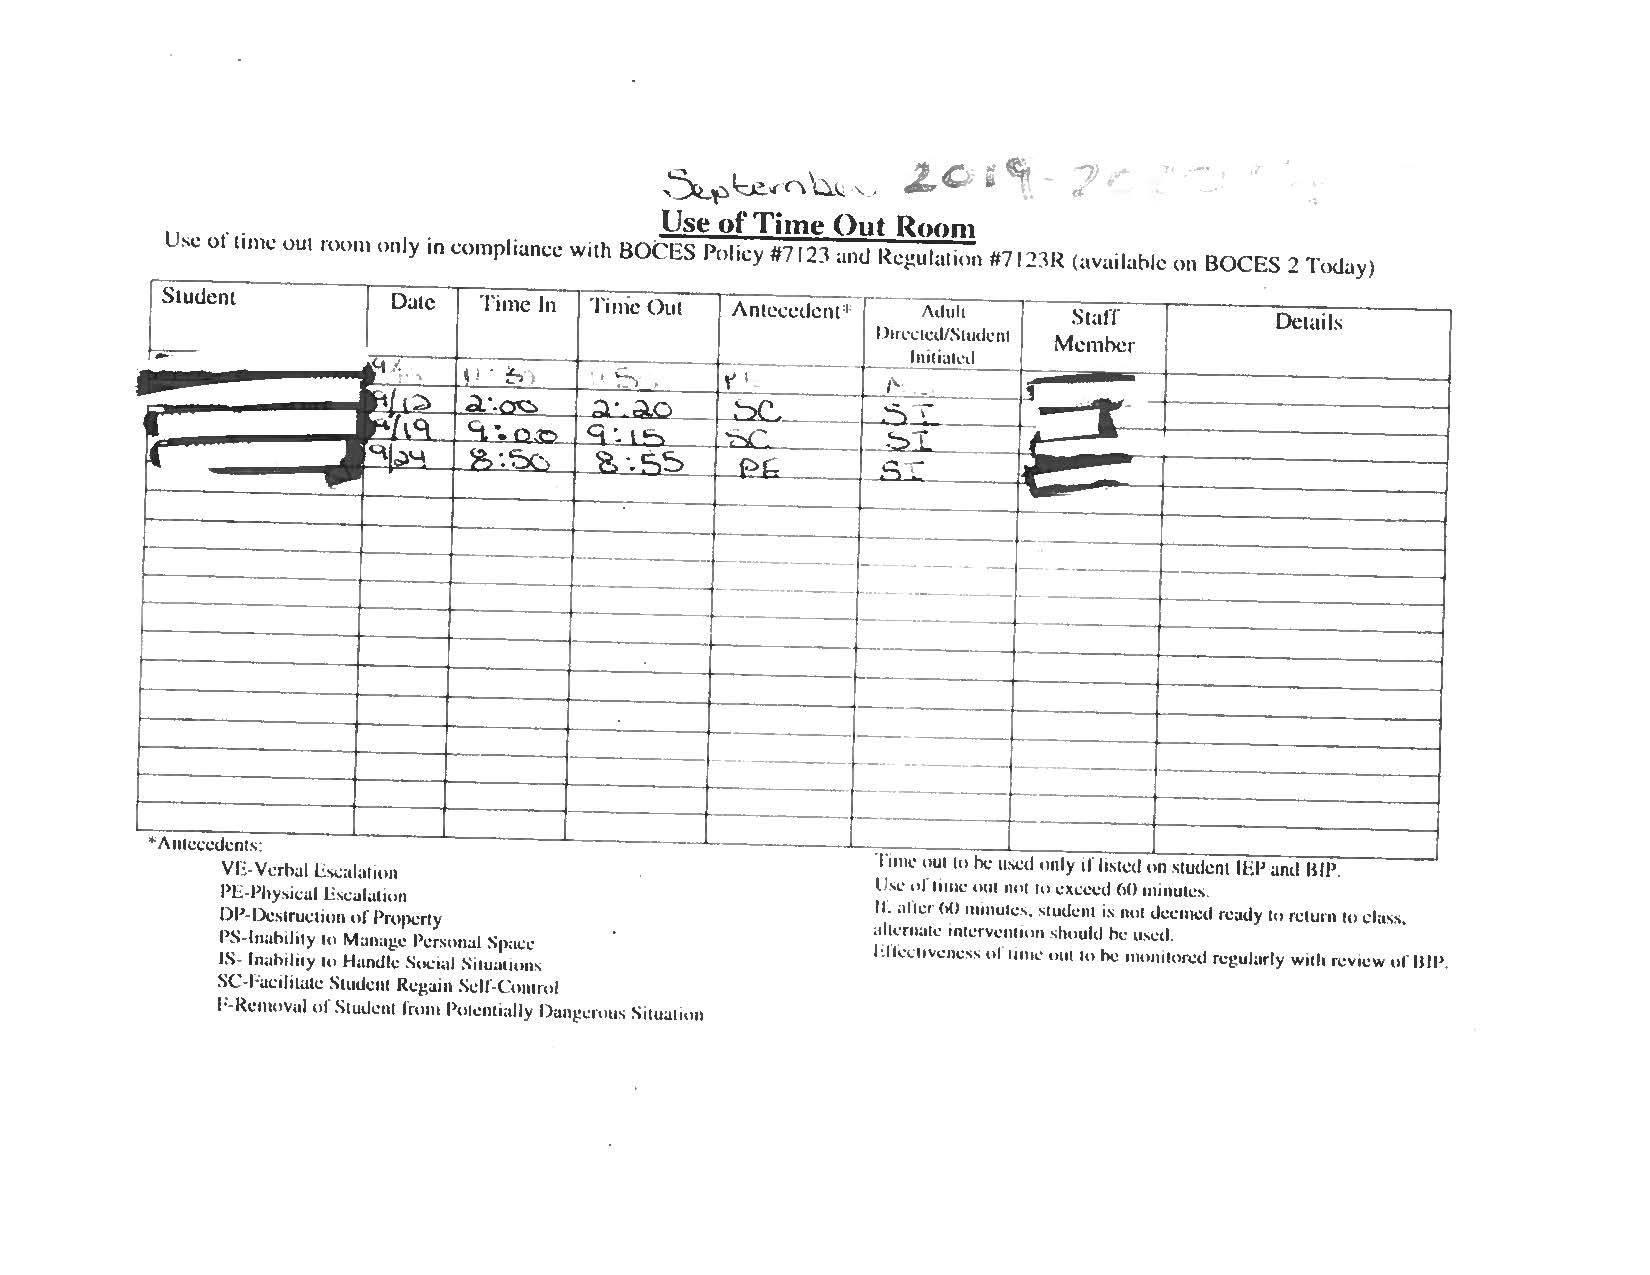 September 2019-
Use of Time Out Room
Use of time out room only in compliance with BOCES Policy #7123 and Regulation #7123R (available on BOCES 2 Today)
Student Date Time In Time Out Antecedent* Adult Directed/Student Initiated Staff Member Details
9/12 2:00 2:20 SC SI
9/19 9:00 9:15 SC SI
9/24 8:50 8:55 PE SI
*Antecedents:
VE-Verbal Escalation
PE-Physical Escalation
DP-Destruction of Property
PS-Inability to Manage Personal Space
IS- Inability to Handle Social Situations
SC-Facilitate Student Regain Self-Control
F-Removal of Student from Potentially Dangerous Situation
Time out to be used only if listed on student IEP and BIP.
Use of time out not to exceed 60 minutes.
If, after 60 minutes, student is not deemed ready to return to class,
alternate intervention should be used.
Effectiveness of time out to be monitored regularly with review of BIP.